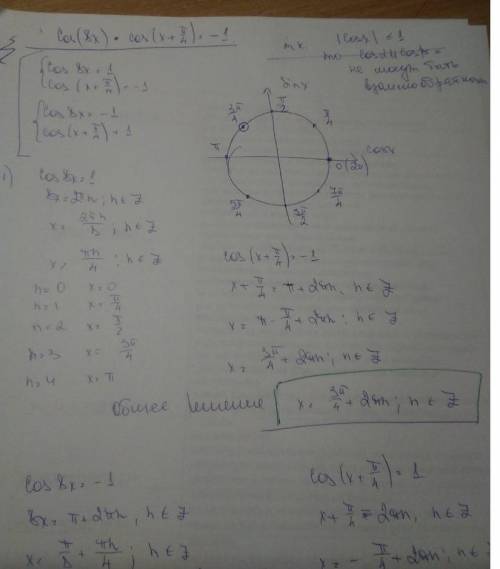 cos(8x) · cos(x+π/4) = -1
т.к. |cos| ≤ 1
не могут быть
{cos 8x = 1
cos(x+π/4) = -1
{cos 8x = -1
cos(x+π/4) = 1
sin x
π/2
3π/4
π/4
π
cos x
0(2π)
5π/4
7π/4
3π/2
1)
cos 8x = 1
8x = 2πn; n ∈ Z
x = 2πn/8; n ∈ Z
x = πn/4; n ∈ Z
n=0 x=0
n=1 x=π/4
n=2 x=π/2
n=3 x=3π/4
n=4 x=π
cos(x+π/4) = -1
x+π/4 = π+2πn, n ∈ Z
x = π-π/4+2πn; n ∈ Z
x = 3π/4+2πn; n ∈ Z
Общее решение x = 3π/4+2πn; n ∈ Z
cos 8x = -1
8x = π+2πn, n ∈ Z
x = π/8+πn/4; n ∈ Z
cos(x+π/4) = 1
x+π/4 = 2πn, n ∈ Z
x = -π/4+2πn; n ∈ Z